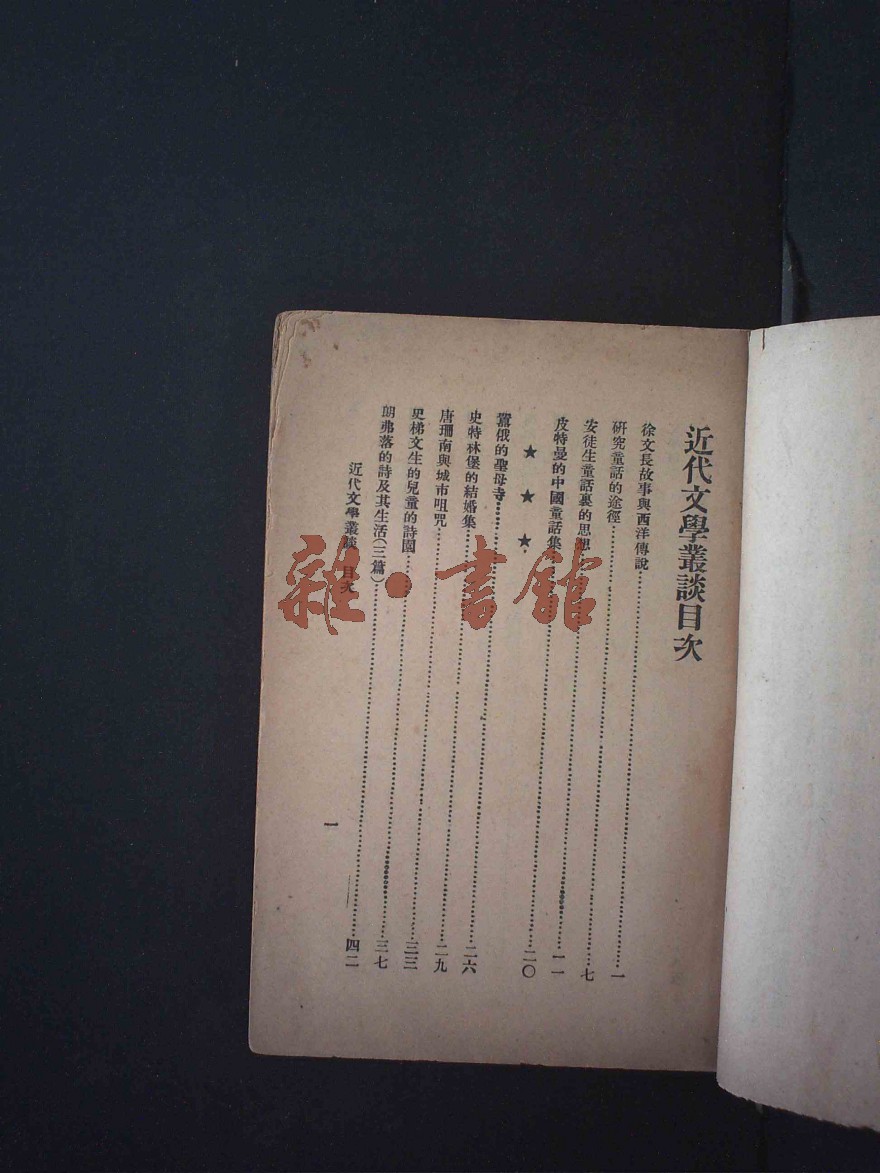 近代文學叢談目次
徐文長故事與西洋傳說……一
研究童話的途徑……七
安徒生童話裏的思想……一一
皮特曼的中國童話集……二〇
★ ★ ★
囂俄的聖母寺……二六
史特林堡的結婚集……二九
唐珊南與城市咀咒……三三
史梯文生的兒童的詩園……三七
朗弗落的詩及其生活(三篇)……四二
近代文學叢談 目次
一
雜·書館